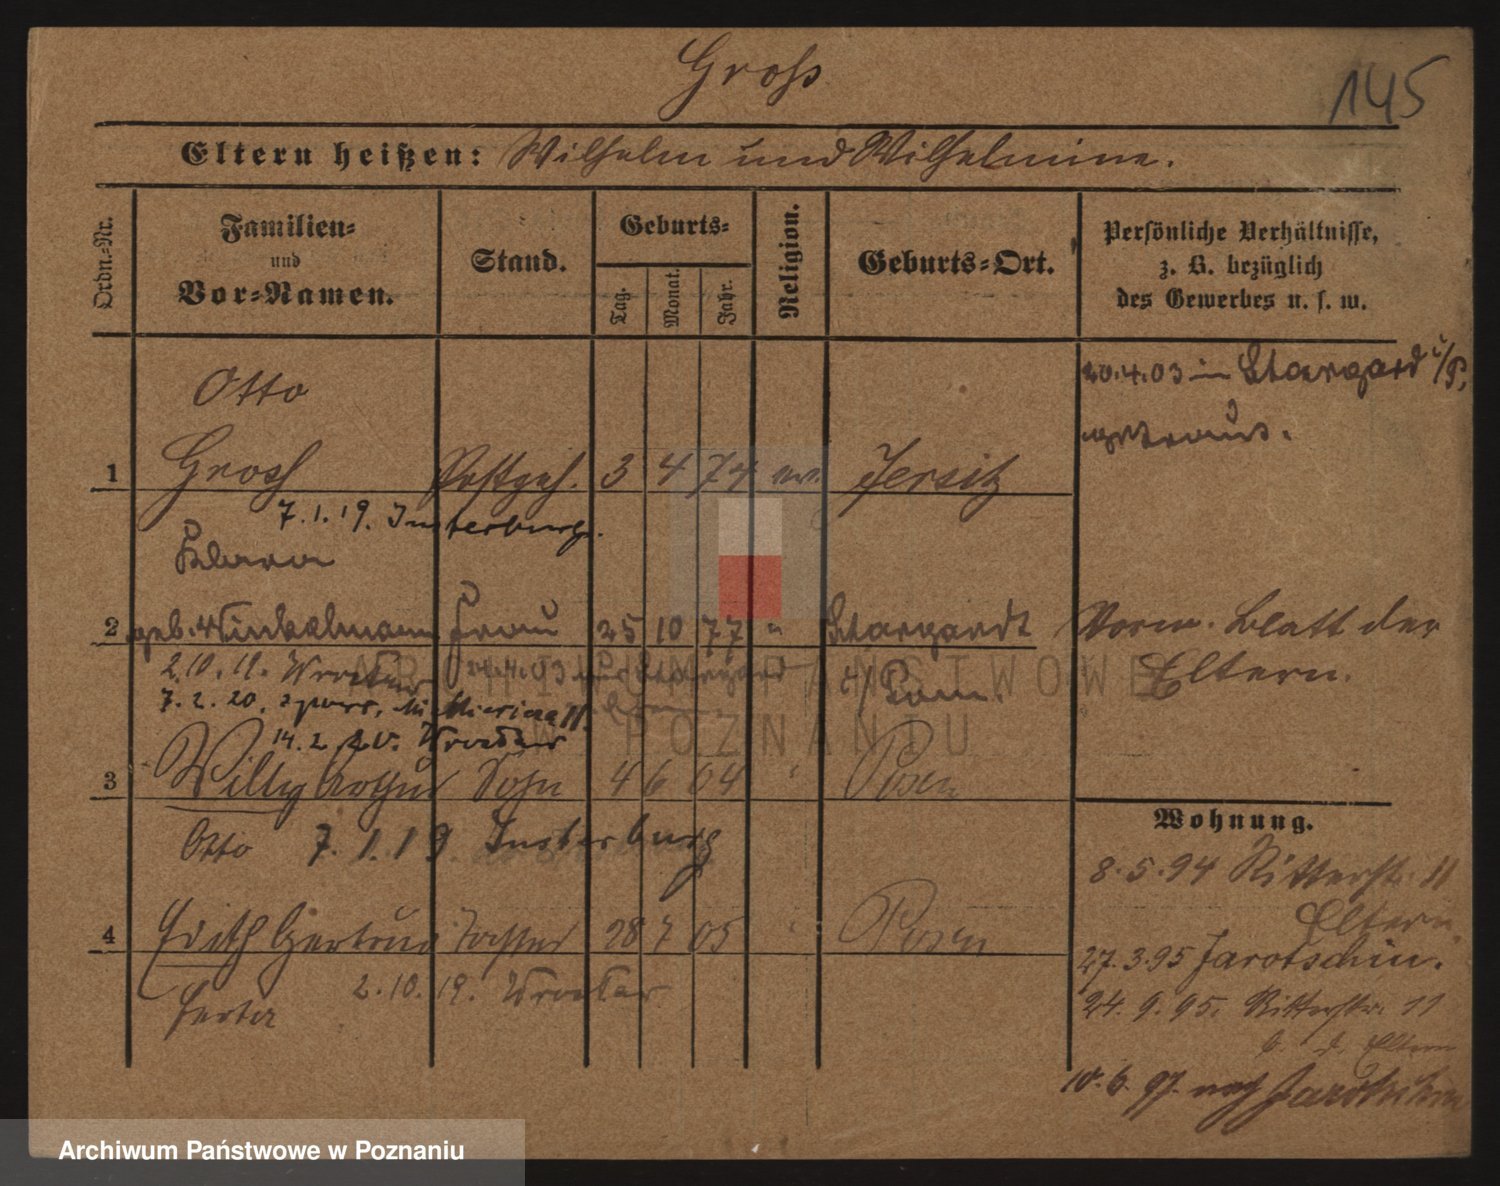 Gross
145
Eltern heißen: Wilhelm und Wilhelmine.
Ordn.-Nr.
Familien-
und
Vor-Namen.
Stand.
Geburts-
Tag.
Monat.
Jahr.
Religion.
Geburts-Ort.
Persönliche Verhältnisse,
z. B. bezüglich
des Gewerbes u. s. w.
Otto
20.4.03 in Stargard i/P.
getraut.
1 Gross Postgeh. 3 4 74 ev. Jersitz
7.1.19. Insterburg.
Klara
2 geb. Winkelmann Frau 25 10 77 " Stargardt
i/Pom.
Vorm. Blatt der
Eltern.
2.10.19. Wrocław
20.4.03
7.2.20.
14.2.20. Wrocław
3 Willy Arthur Sohn 4 6 04 " Posen
Otto 7.1.19 Insterburg
4 Edith Gertrud Tochter 28 7 05 " Posen
Herta 2.10.19. Wrocław
Wohnung.
8.5.94 Ritterstr. 11
Eltern.
27.3.95 Jarotschin.
24.9.95. Ritterstr. 11
b. d. Eltern
10.6.97. nach Jarotschin
ARCHIWUM PAŃSTWOWE
W POZNANIU
Archiwum Państwowe w Poznaniu